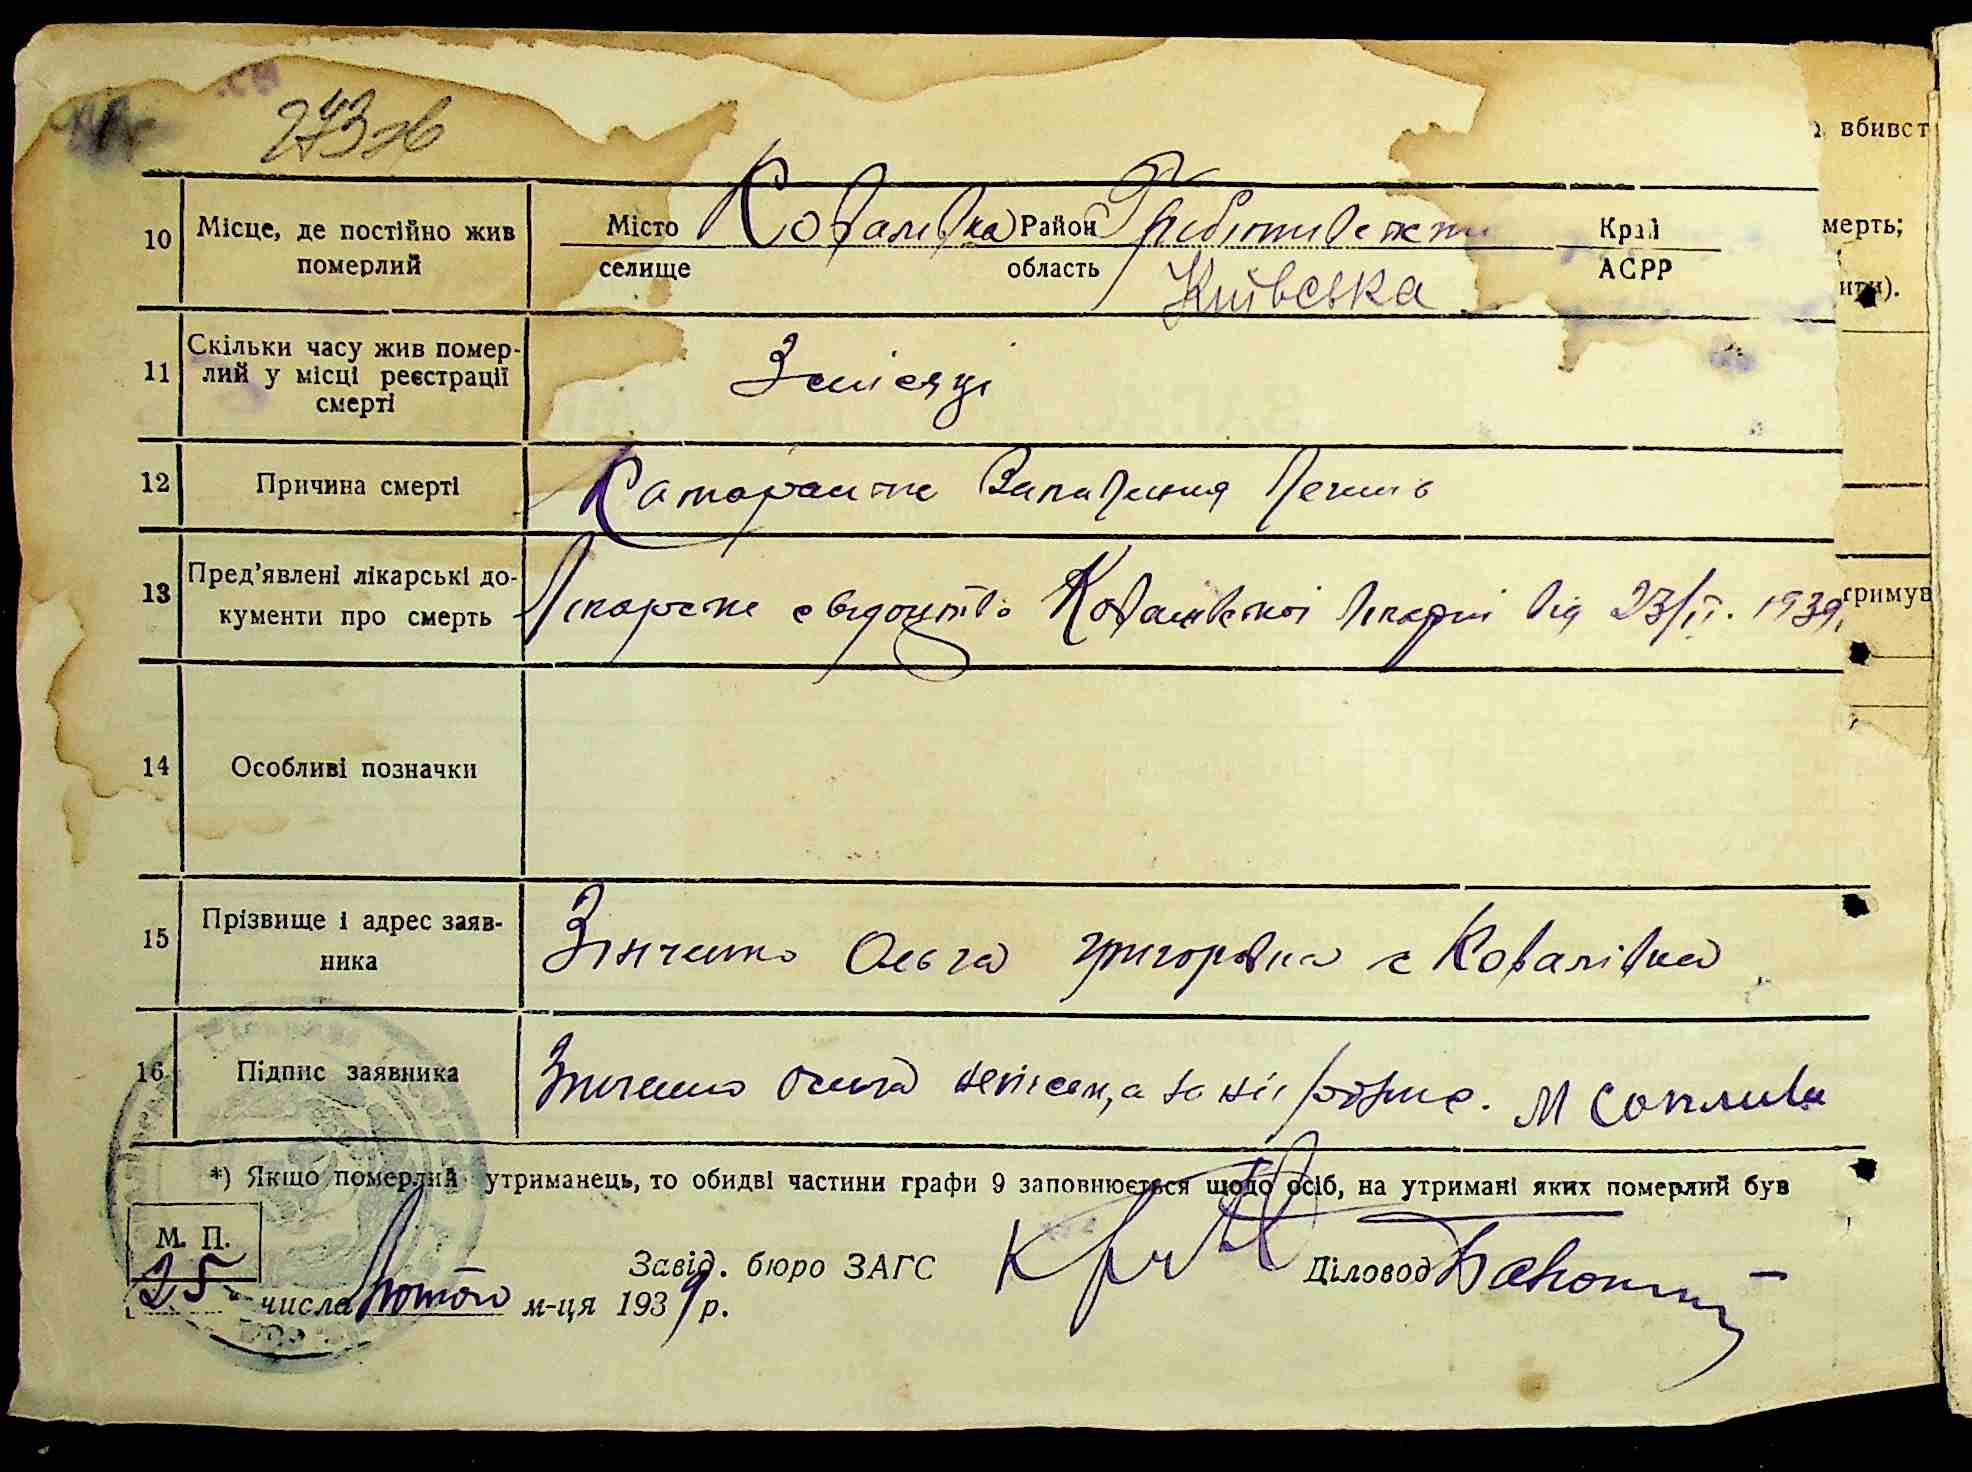 273 ж
вбивст
10 Місце, де постійно жив померлий
Місто Ковалівка Район Гребінківський Край
селище область Київська АСРР
мерть;
ити).
11 Скільки часу жив помер-
лий у місці реєстрації
смерті
3 місяці
12 Причина смерті
Катаральне Запалення Легень
13 Пред’явлені лікарські до-
кументи про смерть
Лікарське свідоцтво Ковалівської лікарні від 23/II. 1939
тримув
14 Особливі позначки
15 Прізвище і адрес заяв-
ника
Зінченко Ольга Григорівна с Ковалівка
16 Підпис заявника
Зінченко Ольга неписем, а за неї М
*) Якщо померлий утриманець, то обидві частини графи 9 заповнюється щодо осіб, на утримані яких померлий був
М. П.
25 числа Лютого м-ця 1939 р.
Завід. бюро ЗАГС
Діловод